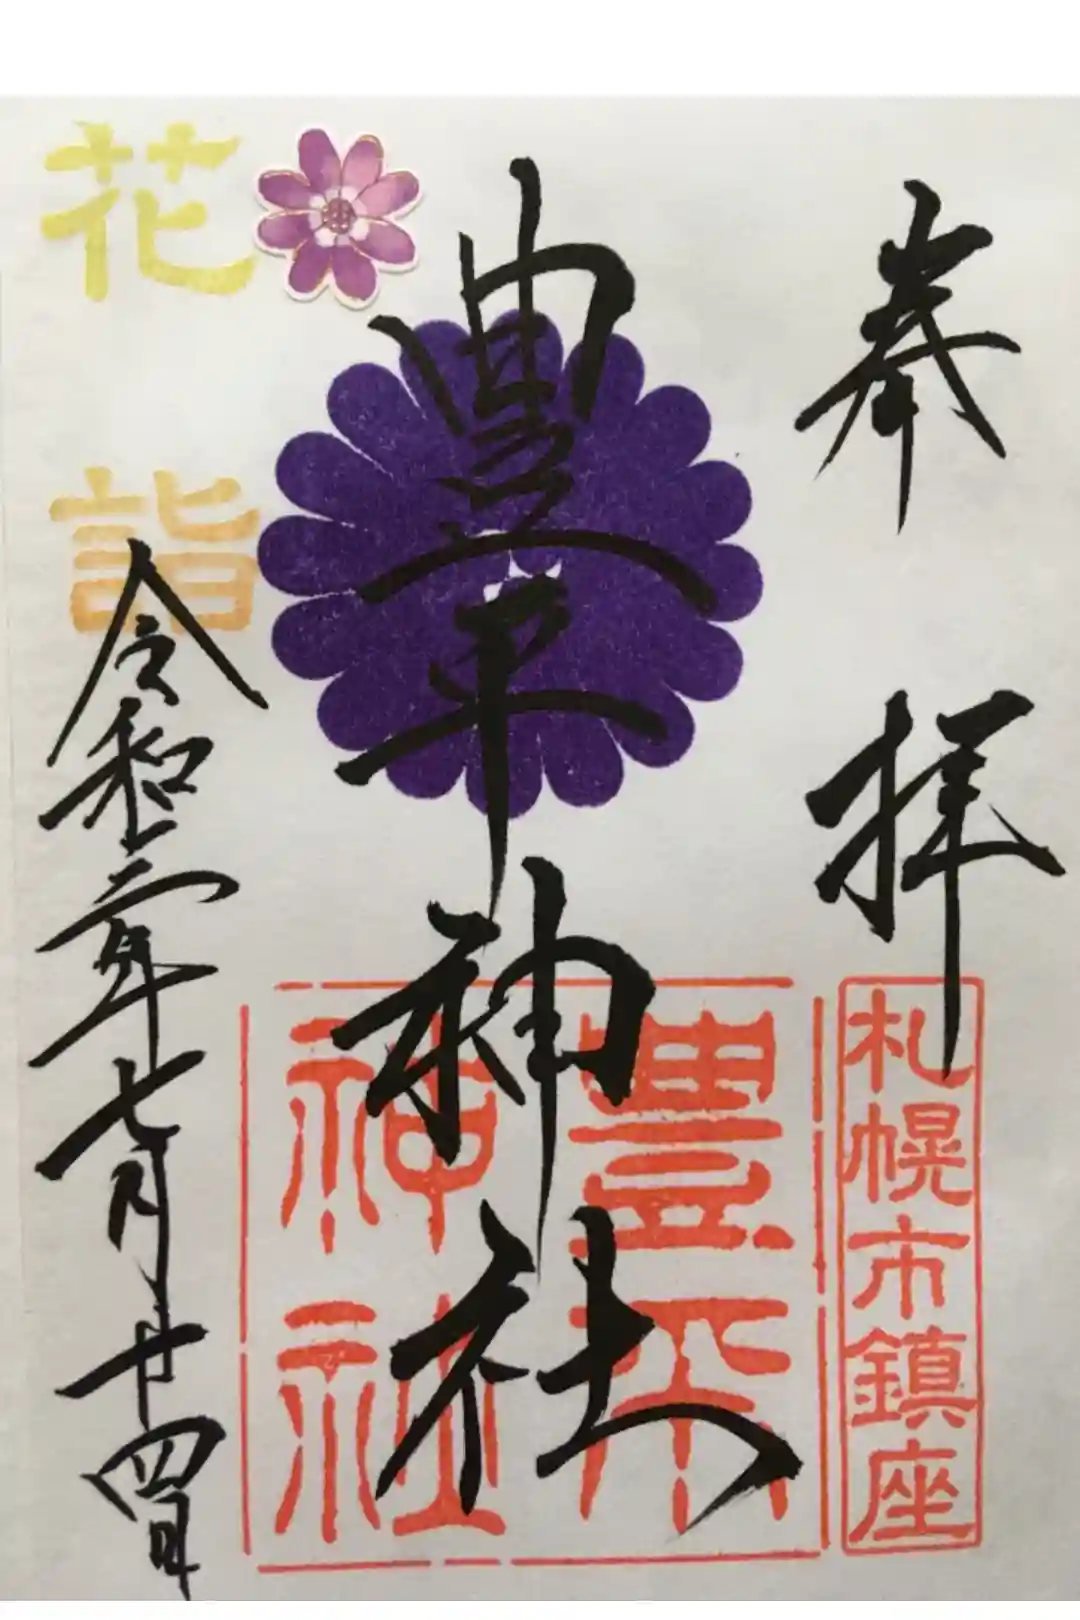 奉拝
札幌市鎮座
豊平神社
豊平
神社
花詣
令和二年七月廿四日